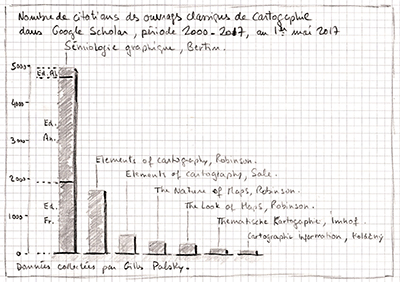 Nombre de citations des ouvrages classiques de cartographie
dans Google Scholar, période 2000-2017, au 1er mai 2017
Sémiologie graphique, Bertin.
5000
Ed. All.
4000
Ed.
An.
Elements of cartography, Robinson.
Elements of Cartography, Sale.
2000
The Nature of Maps, Robinson.
Ed.
The Look of Maps, Robinson.
1000
Thematische Kartographie, Imhof.
Fr.
Cartographic Information,
0
Données collectées par Gilles Palsky.